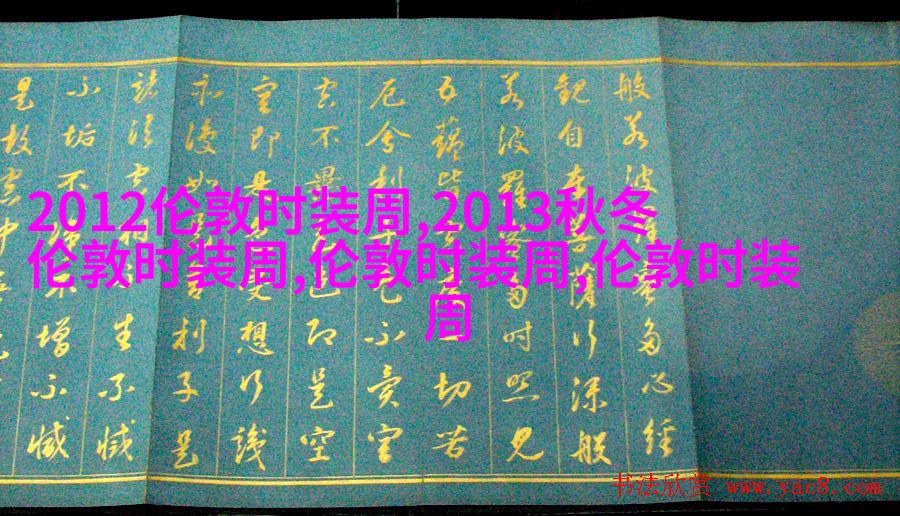 2012伦敦时装周,2013秋冬
伦敦时装周,伦敦时装周,伦敦时装
周
般若波羅蜜多心經
觀自在菩薩行深般
若波羅蜜多時照見
五蘊皆空度一切苦
厄舍利子色不異空
空不異色色即是空
空即是色受想行識
亦復如是舍利子是
諸法空相不生不滅
不垢不淨不增不減
是故空中無
书法欣赏 www.yac8.com